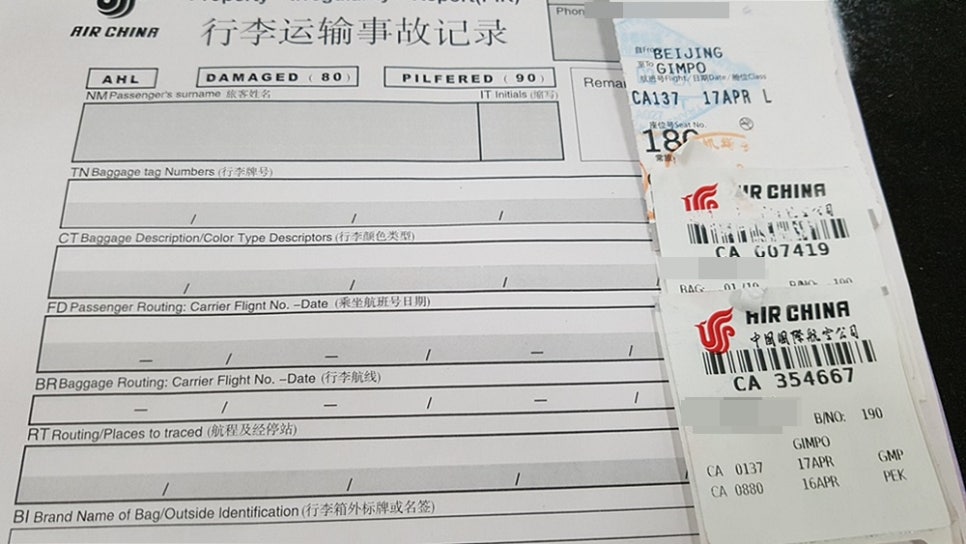 AIR CHINA
Property Irregularity Report(PIR)
行李运输事故记录
AHL
DAMAGED ( 80 )
PILFERED ( 90 )
NM Passenger's surname 旅客姓名
IT Initials (缩写)
TN Baggage tag Numbers (行李牌号)
/ / /
CT Baggage Description/Color Type Descriptors (行李颜色类型)
/ / /
FD Passenger Routing: Carrier Flignt No. –Date (乘坐航班号日期)
— / — / — /
BR Baggage Routing: Carrier Flight No. –Date (行李航线)
— / — / — /
RT Routing/Places to traced (航程及经停站)
/ / / /
BI Brand Name of Bag/Outside Identification (行李箱外标牌或名签)
Phon
Remar
自From BEIJING
至To GIMPO
航班号Flight/日期Date/舱位Class
CA137 17APR L
座位号Seat No.
180
AIR CHINA
CA 007419
BAG: 01/10
AIR CHINA
中国国际航空公司
CA 354667
B/NO: 190
GIMPO
CA 0137 17APR GMP
CA 0880 16APR PEK